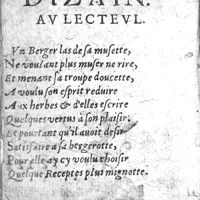 DIZAIN.
AV LECTEVR.
Vn Berger las de sa musette,
Ne voulant plus muser ne rire,
Et menant sa troupe doucette,
A voulu son esprit reduire
Aux herbes & d'elles escrire
Quelques vertus à son plaisir.
Et pourtant qu'il auoit desir
Satisfaire à sa bergerotte,
Pour elle a cy voulu choisir
Quelque Receptes plus mignotte.